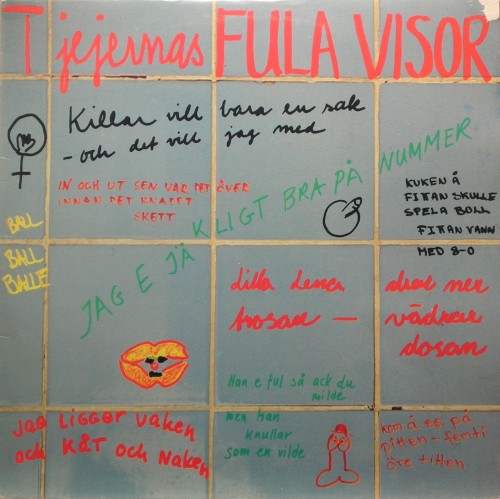 Tjejernas FULA VISOR
Killar vill bara en sak
- och det vill jag med
IN OCH UT SEN VAR DET ÖVER
INNAN DET KNAPPT
SKETT
JAG E JÄKLIGT BRA PÅ NUMMER
KUKEN Å
FITTAN SKULLE
SPELA BOLL
FITTAN VANN
MED 8-0
BALL
BALL
BALLE
lilla Lena drar ner
trosan - vädrar
dosan
Han e ful så ack du
milde
men han
knullar
som en vilde
JAG LIGGER VAKEN
och KÅT och NAKEN
KOM Å SE PÅ
pitten - femti
öre titten